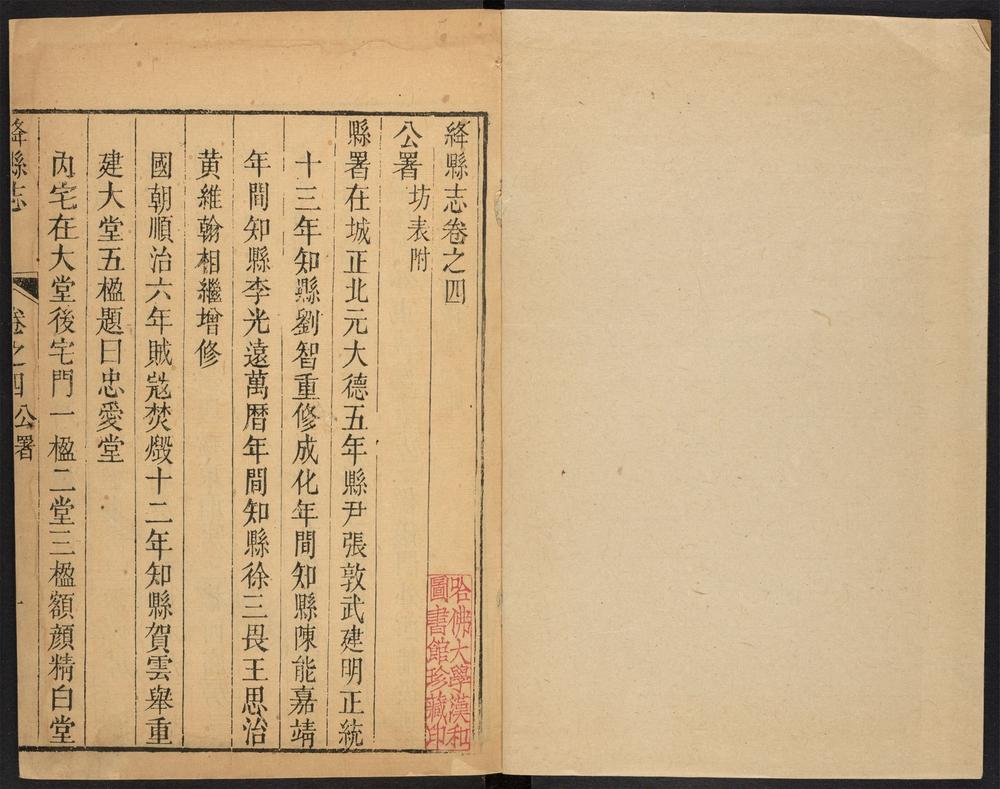 絳縣志卷之四
公署坊表附
縣署在城正北元大德五年縣尹張敦武建明正統
十三年知縣劉智重修成化年間知縣陳能嘉靖
年間知縣李光遠萬曆年間知縣徐三畏王思治
黄維翰相繼增修
國朝順治六年賊冦焚燬十二年知縣賀雲舉重
建大堂五楹題曰忠愛堂
內宅在大堂後宅門一楹二堂三楹額顔精白堂
絳縣志 卷之四公署 一
哈佛大學漢和
圖書館珍藏印